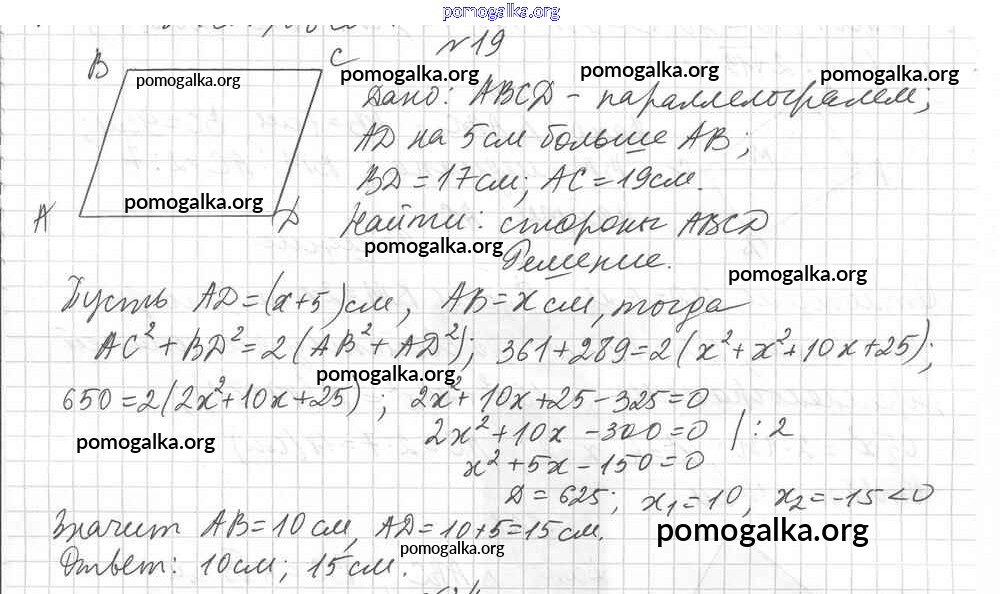 pomogalka.org
N 19
B C
pomogalka.org pomogalka.org pomogalka.org pomogalka.org
Дано: ABCD - параллелограмм;
AD на 5 см больше AB;
BD = 17 см; AC = 19 см.
pomogalka.org
A D Найти: стороны ABCD
pomogalka.org
Решение.
pomogalka.org
Пусть AD = (x+5) см, AB = x см, тогда
AC² + BD² = 2(AB² + AD²); 361 + 289 = 2(x² + x² + 10x + 25);
pomogalka.org
650 = 2(2x² + 10x + 25); 2x² + 10x + 25 - 325 = 0
pomogalka.org
2x² + 10x - 300 = 0 | : 2
x² + 5x - 150 = 0
D = 625; x₁ = 10, x₂ = -15 < 0
Значит AB = 10 см, AD = 10 + 5 = 15 см.
pomogalka.org pomogalka.org
Ответ: 10 см; 15 см.